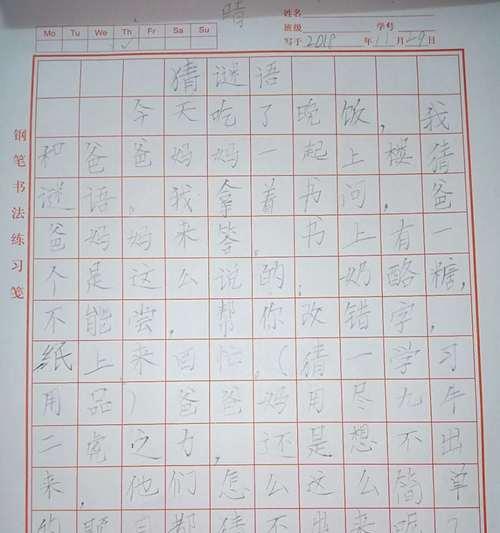 晴
姓名
班级 学号
写于 2018 年 11 月 29 日
Mo Tu We Th Fr Sa Su
钢笔书法练习笺
猜谜语
今天吃了晚饭，我
和爸爸妈妈一起上楼猜
谜语，我拿着书问，爸
爸妈妈来答，书上有一
个是这么说的，奶酪糖，
不能尝，帮你改错字，
纸上来回忙，（猜一学习
用品）爸爸妈用尽九牛
二虎之力，还是想不出
来，他们怎么这么简单
的题目都猜不出来呢？